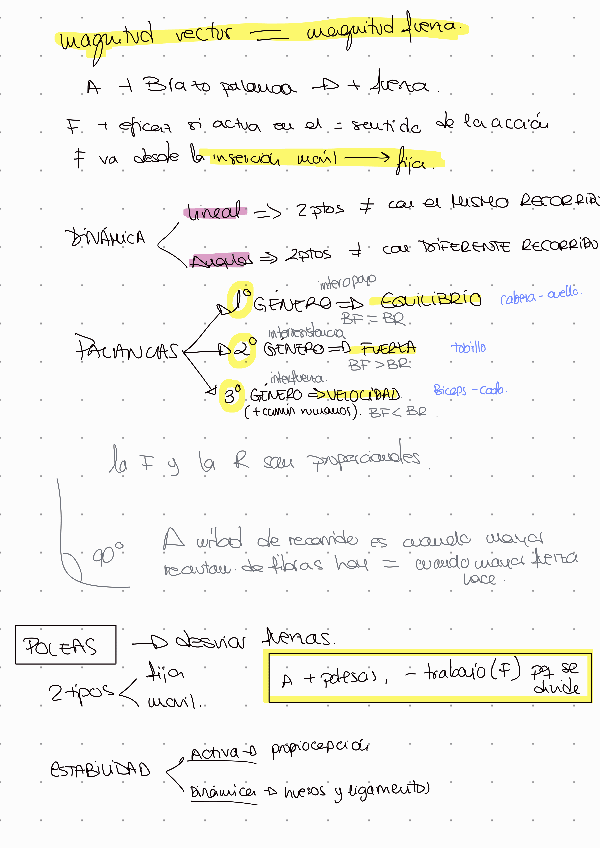 magnitud vector = magnitud fuerza.
A + Brazo palanca → + fuerza.
F + eficaz si actua en el = sentido de la acción
F va desde la inserción movil → fija.
DINÁMICA
Lineal => 2 ptos ≠ con el MISMO RECORRIDO
Angular => 2 ptos ≠ con DIFERENTE RECORRIDO
PALANCAS
interapoyo
1º GÉNERO => EQUILIBRIO cabeza-cuello.
BF = BR
interresistencia
2º GÉNERO => FUERZA tobillo
BF > BR
interfuerza
3º GÉNERO => VELOCIDAD Biceps-codo.
(+ común humanos). BF < BR
la F y la R son proporcionales.
90º
A mitad de recorrido es cuando mayor
reclutam. de fibras hay = cuando mayor fuerza
hace.
POLEAS → desviar fuerzas.
2 tipos
fija
movil.
A + poleas, - trabajo (F) pq se
divide
ESTABILIDAD
Activa → propiocepción
Dinámica → huesos y ligamentos